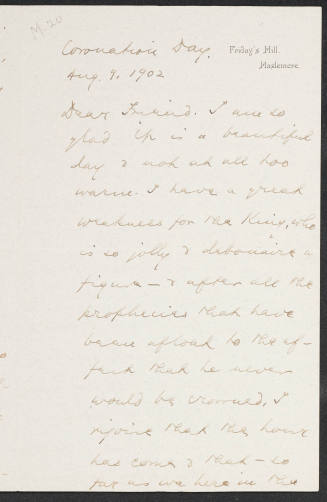 M-20
Coronation Day.
Friday's Hill.
Haslemere.
Aug. 9. 1902
Dear Friend. I am so
glad it is a beautiful
day & not at all too
warm. I have a great
weakness for the King, who
is so jolly & debonaire a
figure — & after all the
prophecies that have
been afloat to the ef-
fect that he never
would be crowned, I
rejoice that the hour
has come & that — so
far as we here in the